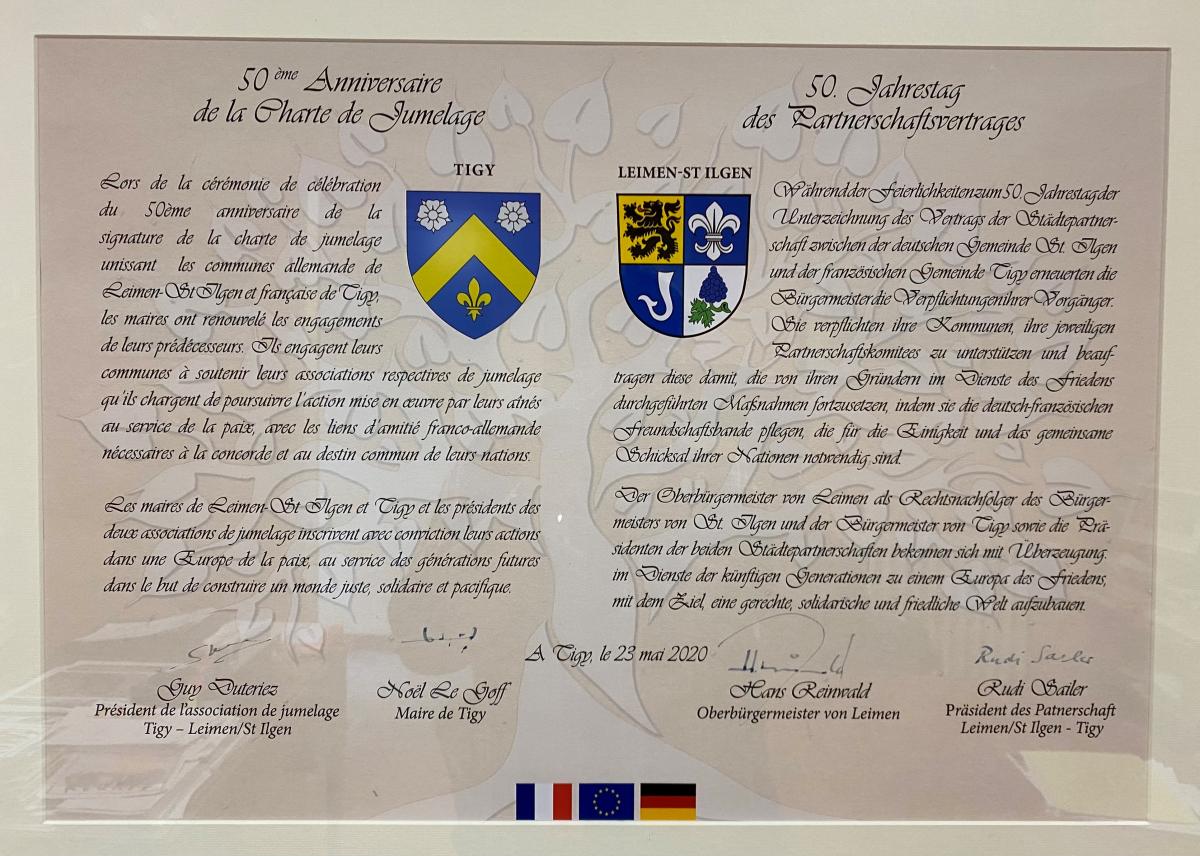 50 ème Anniversaire
de la Charte de Jumelage
TIGY
Lors de la cérémonie de célébration
du 50ème anniversaire de la
signature de la charte de jumelage
unissant les communes allemande de
Leimen-St Ilgen et française de Tigy,
les maires ont renouvelé les engagements
de leurs prédécesseurs. Ils engagent leurs
communes à soutenir leurs associations respectives de jumelage
qu'ils chargent de poursuivre l'action mise en œuvre par leurs aînés
au service de la paix, avec les liens d'amitié franco-allemande
nécessaires à la concorde et au destin commun de leurs nations.
Les maires de Leimen-St Ilgen et Tigy et les présidents des
deux associations de jumelage inscrivent avec conviction leurs actions
dans une Europe de la paix, au service des générations futures
dans le but de construire un monde juste, solidaire et pacifique.
50. Jahrestag
des Partnerschaftsvertrages
LEIMEN-ST ILGEN
Während der Feierlichkeiten zum 50. Jahrestag der
Unterzeichnung des Vertrags der Städtepartner-
schaft zwischen der deutschen Gemeinde St. Ilgen
und der französischen Gemeinde Tigy erneuerten die
Bürgermeister die Verpflichtungen ihrer Vorgänger.
Sie verpflichten ihre Kommunen, ihre jeweiligen
Partnerschaftskomitees zu unterstützen und beauf-
tragen diese damit, die von ihren Gründern im Dienste des Friedens
durchgeführten Maßnahmen fortzusetzen, indem sie die deutsch-französischen
Freundschaftsbande pflegen, die für die Einigkeit und das gemeinsame
Schicksal ihrer Nationen notwendig sind.
Der Oberbürgermeister von Leimen als Rechtsnachfolger des Bürger-
meisters von St. Ilgen und der Bürgermeister von Tigy sowie die Prä-
sidenten der beiden Städtepartnerschaften bekennen sich mit Überzeugung,
im Dienste der künftigen Generationen zu einem Europa des Friedens,
mit dem Ziel, eine gerechte, solidarische und friedliche Welt aufzubauen.
A Tigy, le 23 mai 2020
Guy Duteriez
Président de l'association de jumelage
Tigy – Leimen/St Ilgen
Noël Le Goff
Maire de Tigy
Hans Reinwald
Oberbürgermeister von Leimen
Rudi Sailer
Rudi Sailer
Präsident des Patnerschaft
Leimen/St Ilgen - Tigy